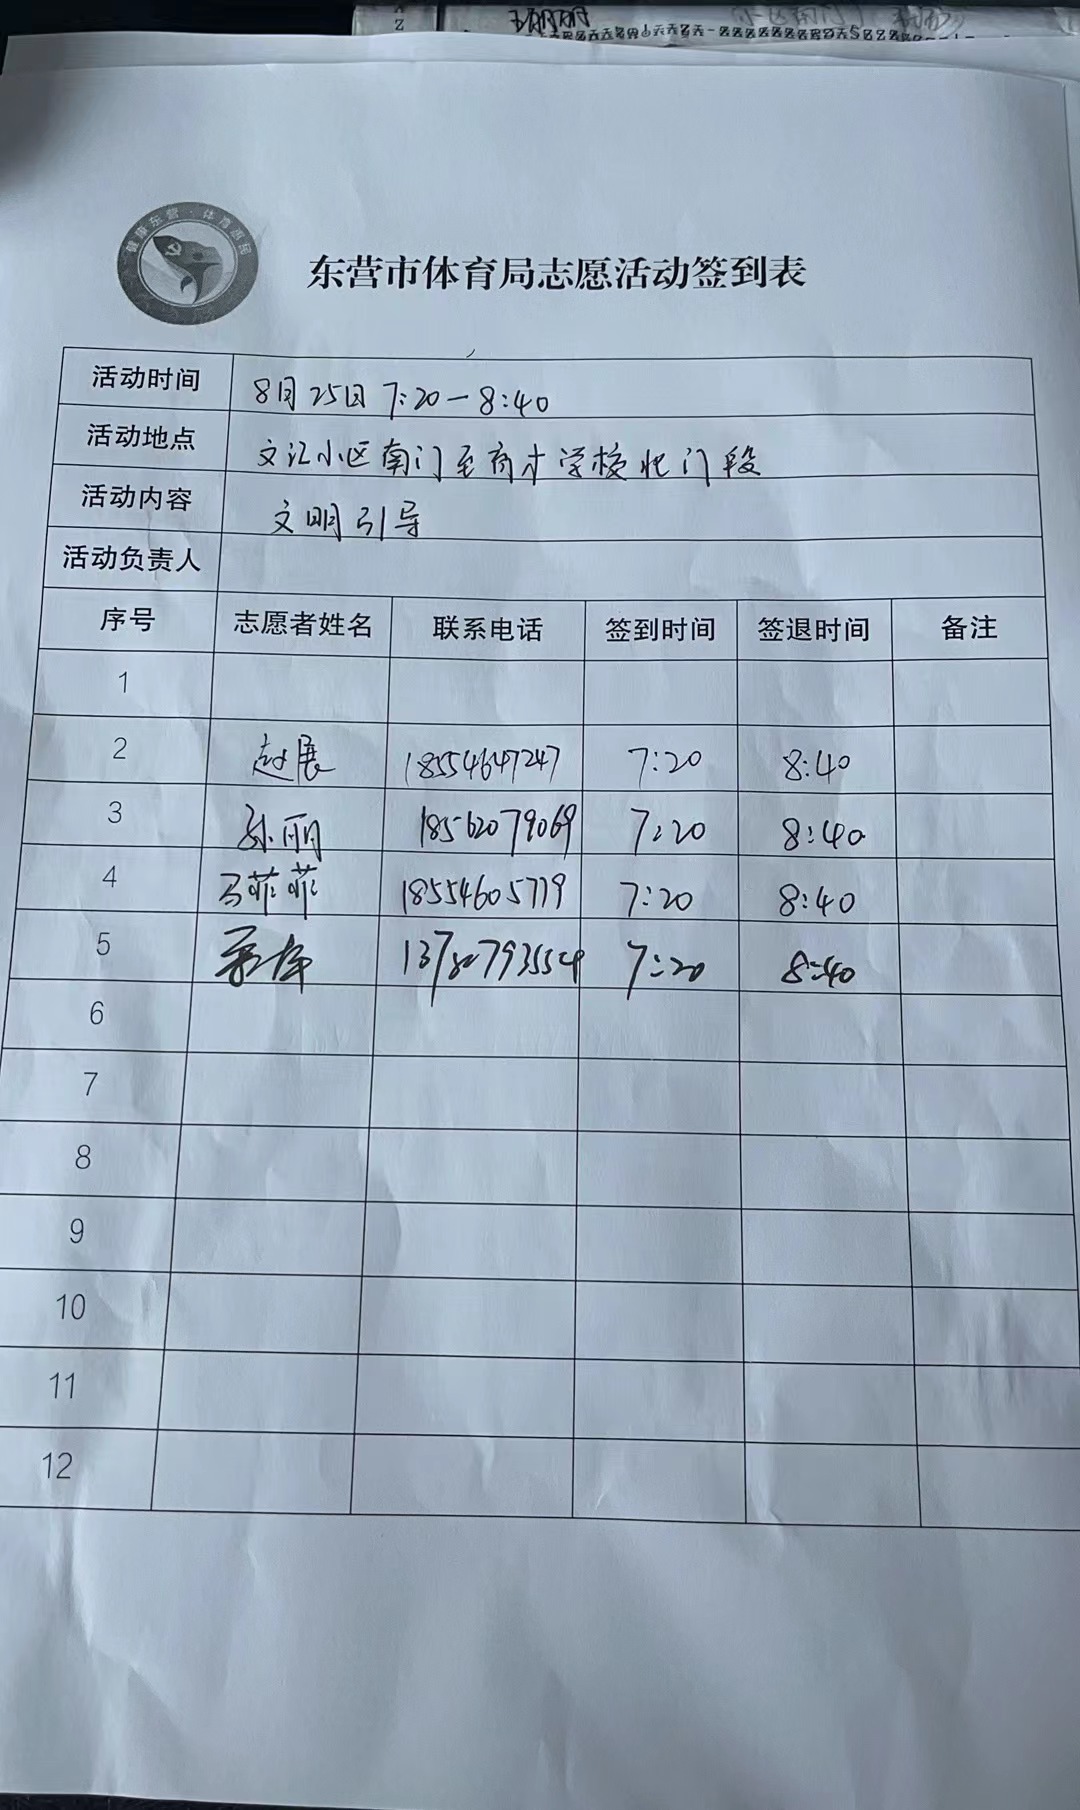 健康东营·体育惠民
东营市体育局志愿活动签到表
活动时间 8月25日 7:20-8:40
活动地点 文汇小区南门至商才学校北门段
活动内容 文明引导
活动负责人
序号 志愿者姓名 联系电话 签到时间 签退时间 备注
1
2 赵展 18554647247 7:20 8:40
3 孙丽 18562079069 7:20 8:40
4 马菲菲 18554605779 7:20 8:40
5 7:20 8:40
6
7
8
9
10
11
12